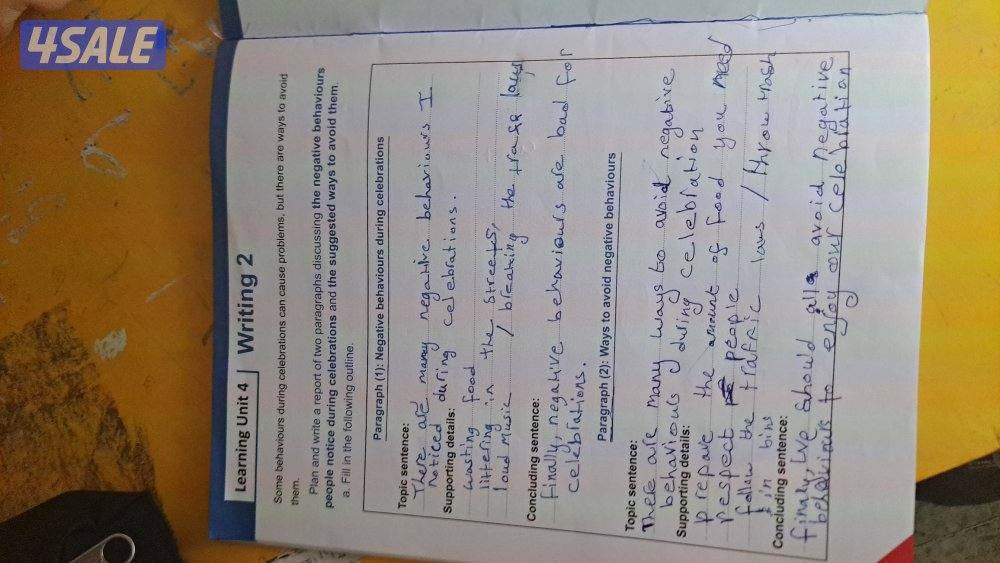 4SALE
Learning Unit 4 | Writing 2
Some behaviours during celebrations can cause problems, but there are ways to avoid
them.
Plan and write a report of two paragraphs discussing the negative behaviours
people notice during celebrations and the suggested ways to avoid them.
a. Fill in the following outline.
Paragraph (1): Negative behaviours during celebrations
Topic sentence:
There are many negative behaviours I
noticed during celebrations.
Supporting details:
wasting food
littering in the streets,
loud music / breaking the laws
Concluding sentence:
Finally, negative behaviours are bad for
celebrations.
Paragraph (2): Ways to avoid negative behaviours
Topic sentence:
There are many ways to avoid negative
behaviouls during celebration
Supporting details:
prepare the amount of food you need
respect people
follow the traffic laws / throw trash
in bins
Concluding sentence:
finally, we should avoid negative
behaviours to enjoy our celebration